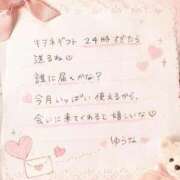 キテネギフト 24時すぎたら
送るね♡
誰に届くかな?
今月いっぱい使えるから、
会いに来てくれると嬉しいな♡
ゆうな